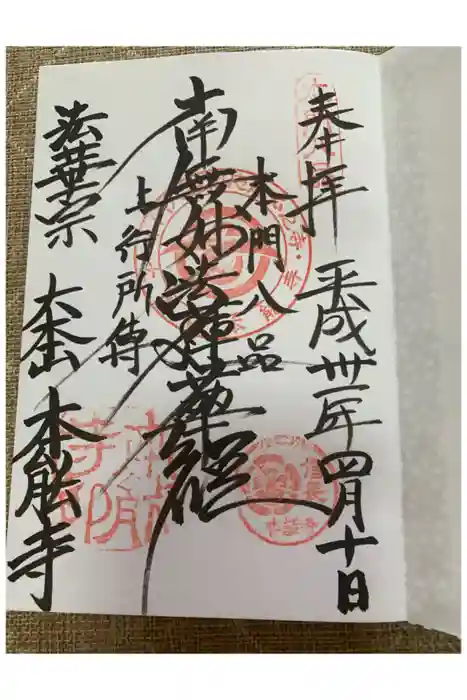 奉拝 平成卅一年四月十日
本門八品
南無妙法蓮華経
上行所傳
法華宗 大本山 本能寺
信長